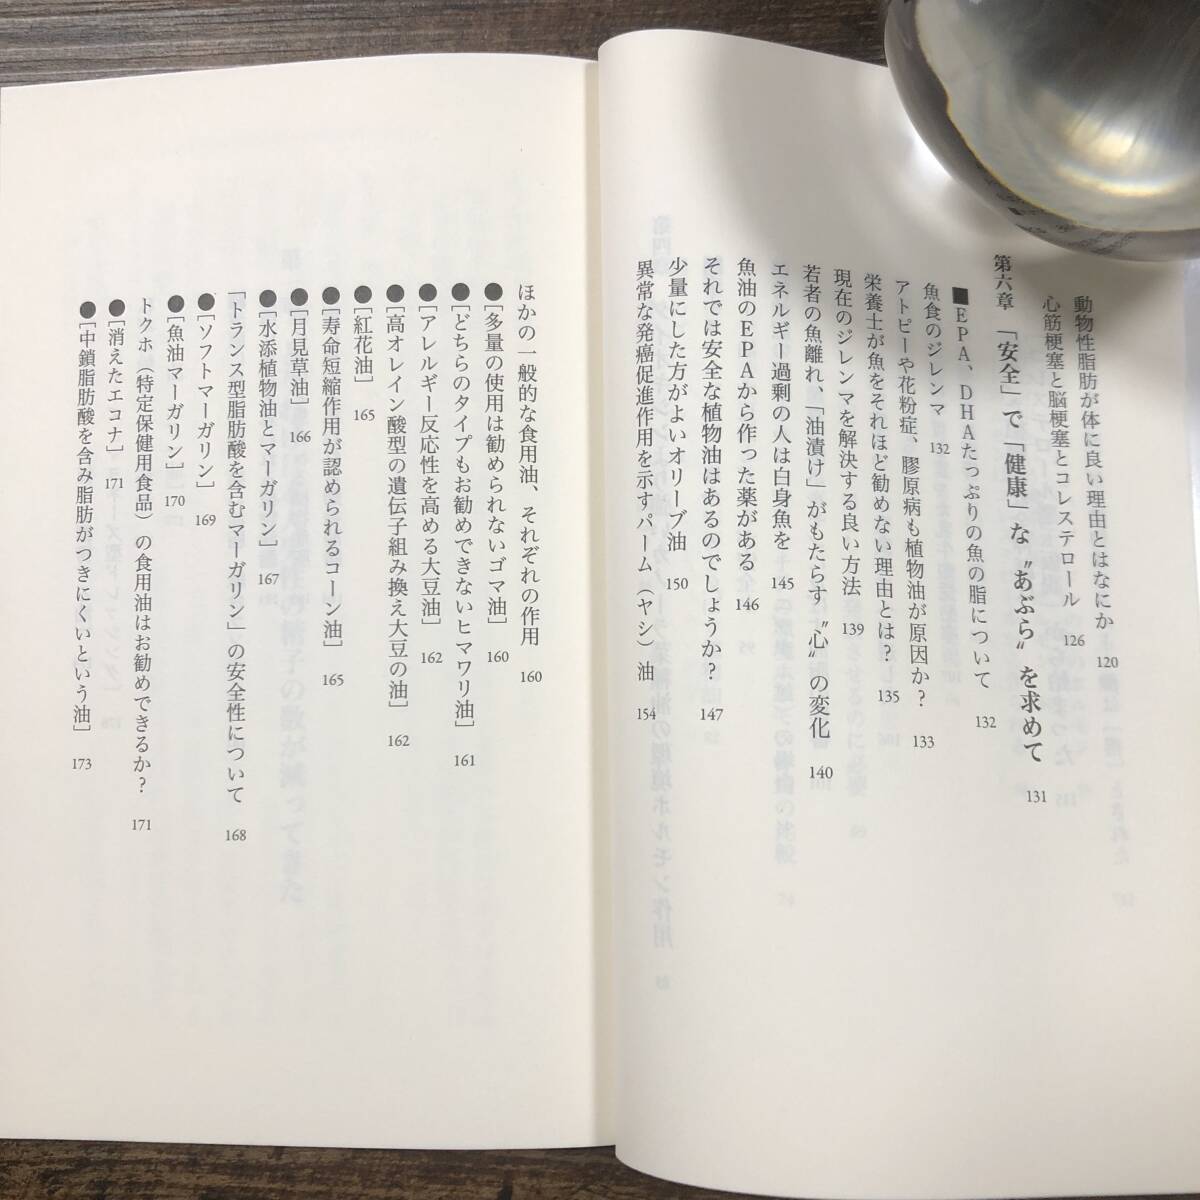 動物性脂肪が体に良い理由とはなにか 120
心筋梗塞と脳梗塞とコレステロール 126
第六章 「安全」で「健康」な〝あぶら〟を求めて 131
■EPA、DHAたっぷりの魚の脂について 132
魚食のジレンマ 132
アトピーや花粉症、膠原病も植物油が原因か? 133
栄養士が魚をそれほど勧めない理由とは? 135
現在のジレンマを解決する良い方法 139
若者の魚離れ、「油漬け」がもたらす〝心〟の変化 140
エネルギー過剰の人は白身魚を 145
魚油のEPAから作った薬がある 146
それでは安全な植物油はあるのでしょうか? 147
少量にした方がよいオリーブ油 150
異常な発癌促進作用を示すパーム(ヤシ)油 154
ほかの一般的な食用油、それぞれの作用 160
●[多量の使用は勧められないゴマ油] 160
●[どちらのタイプもお勧めできないヒマワリ油] 161
●[アレルギー反応性を高める大豆油] 162
●[高オレイン酸型の遺伝子組み換え大豆の油] 162
●[紅花油] 165
●[寿命短縮作用が認められるコーン油] 165
●[月見草油] 166
●[水添植物油とマーガリン] 167
「トランス型脂肪酸を含むマーガリン」の安全性について 168
●[ソフトマーガリン] 169
●[魚油マーガリン] 170
トクホ(特定保健用食品)の食用油はお勧めできるか? 171
●[消えたエコナ] 171
●[中鎖脂肪酸を含み脂肪がつきにくいという油] 173